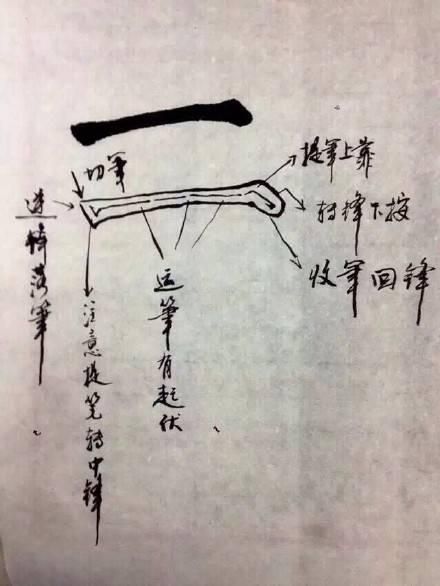 一
切笔
逆锋落筆
注意提笔转中锋
运筆有起伏
提筆上靠
转锋下按
收筆回锋